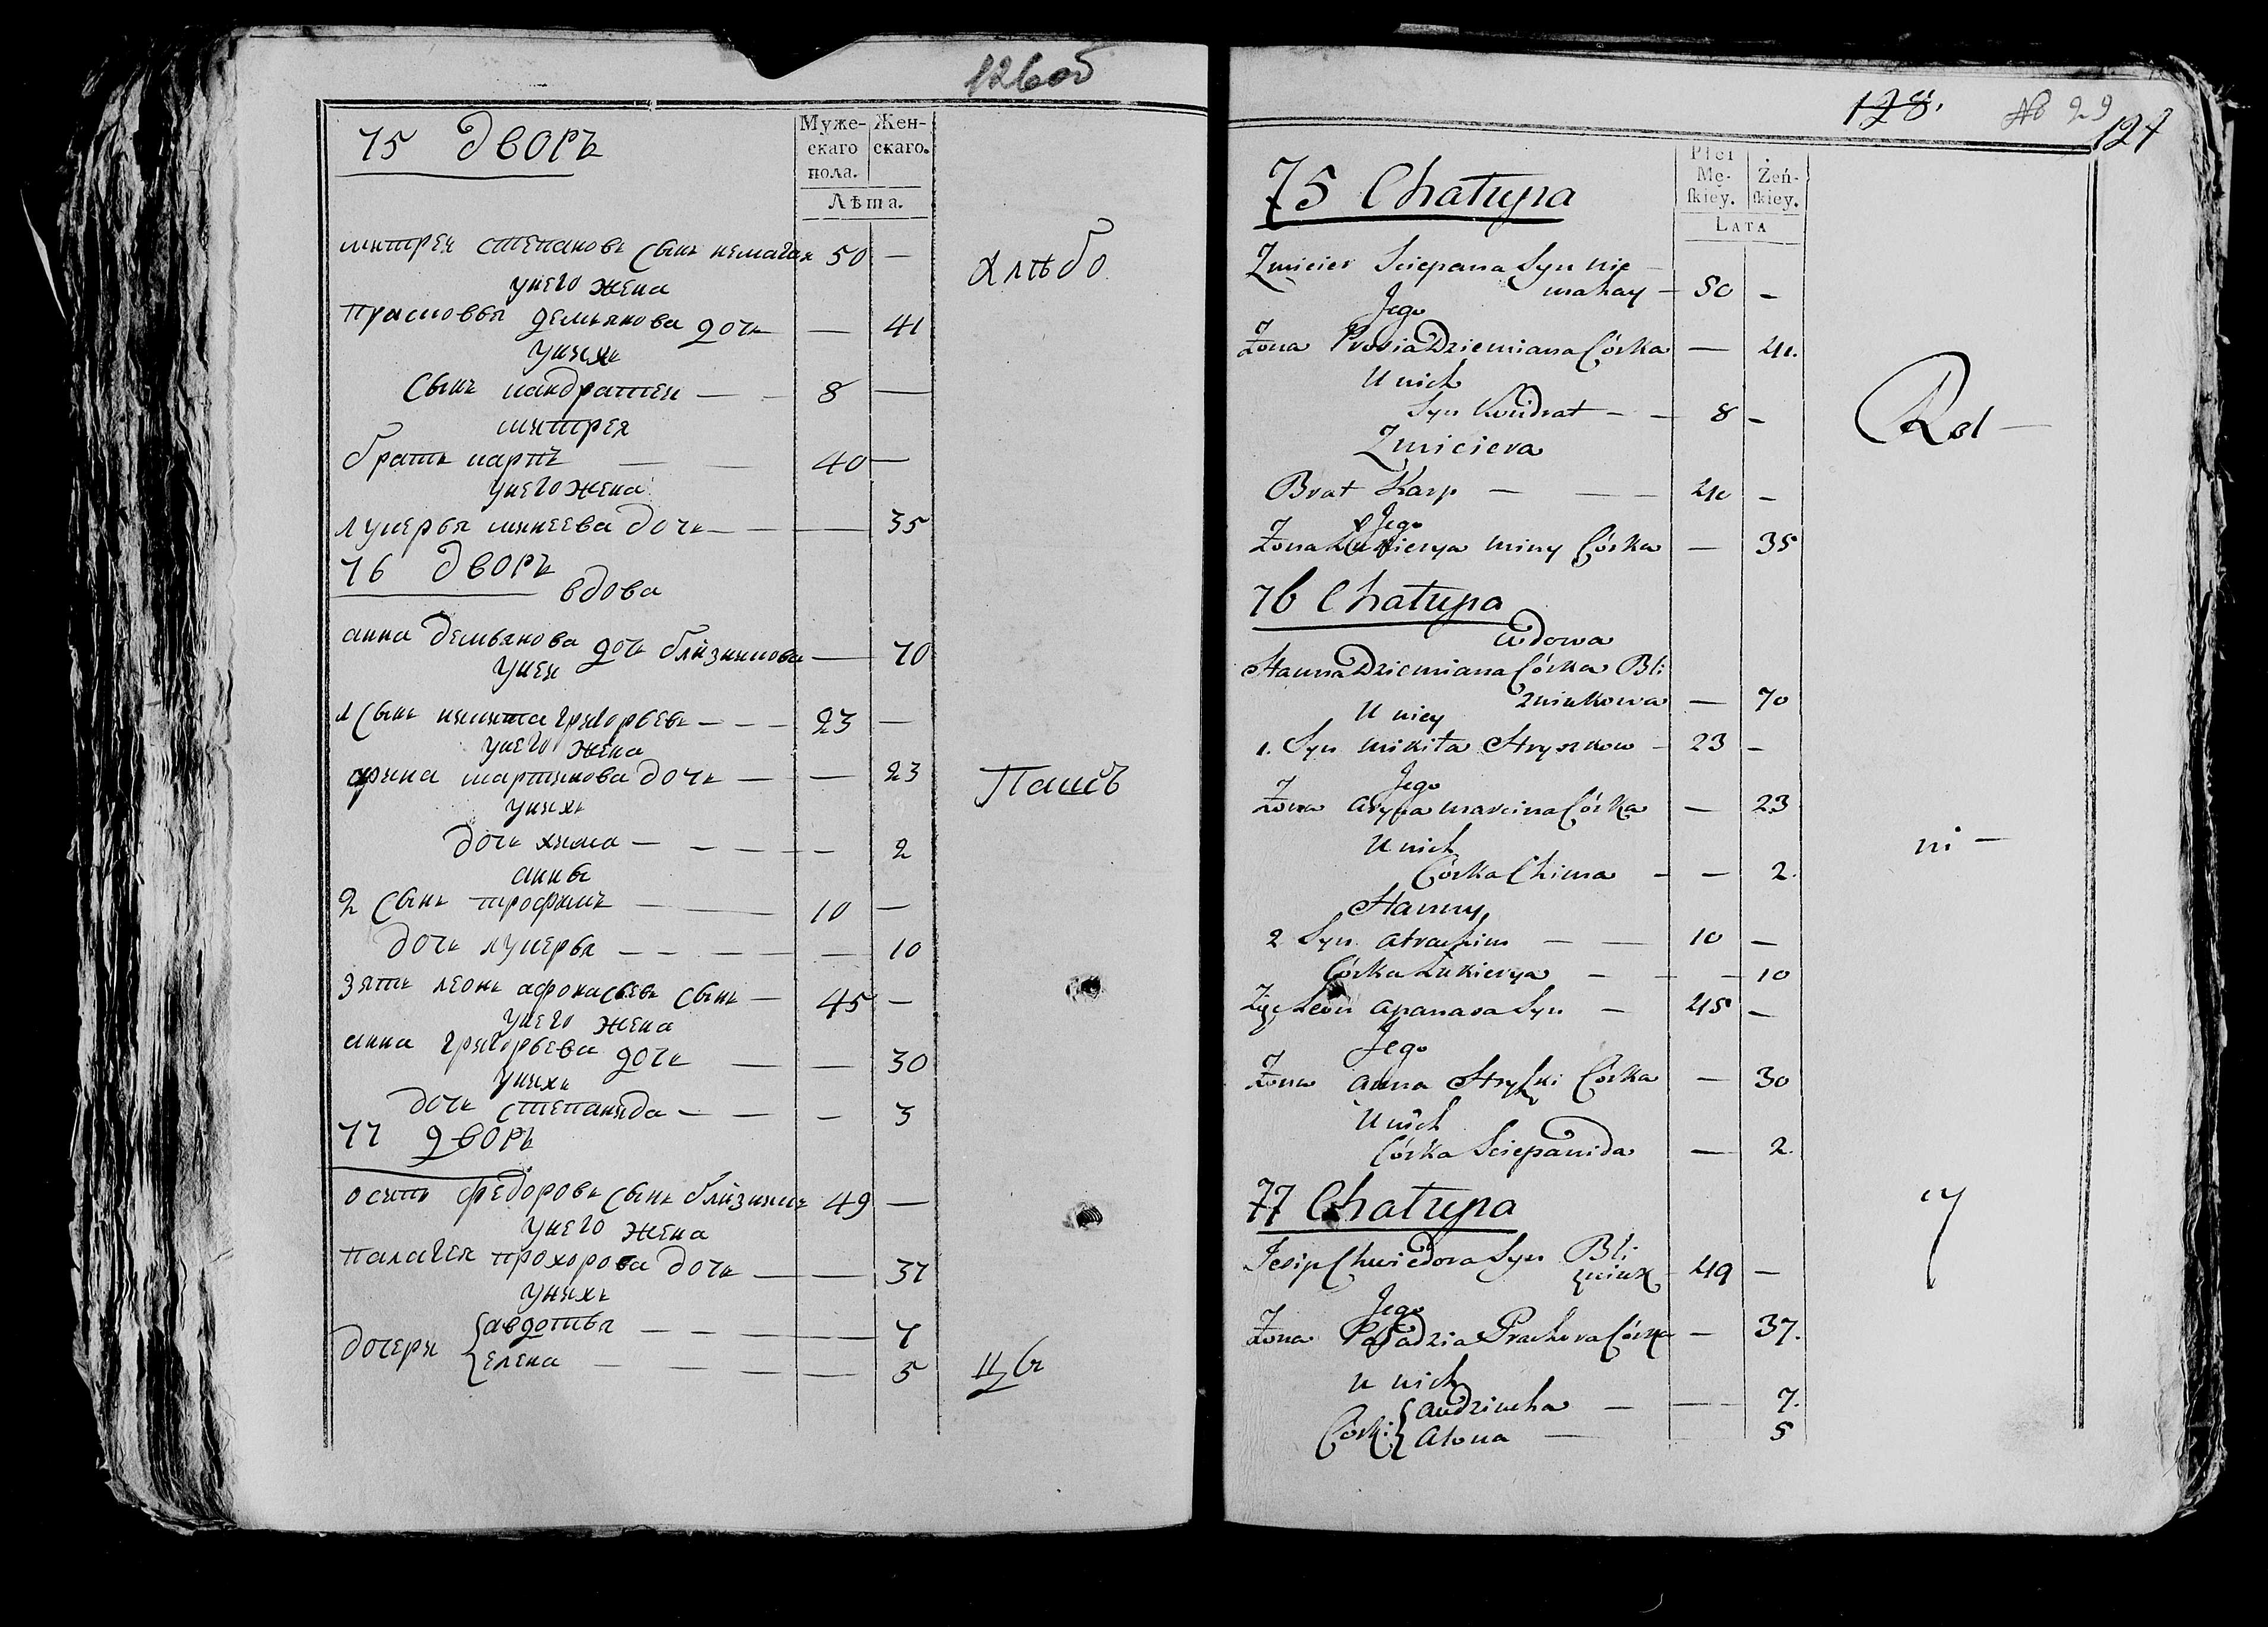 126об
75 дворъ
Муже-
скаго
пола.
Жен-
скаго.
Лѣта.
митреи степановъ сынъ немагаи 50 —
унего жена
Прасковья демьянова дочь — 41
унихъ
сынъ кандратеи — — 8 —
митрея
братъ карпъ — — 40 —
унего жена
лукерья минеева дочь — — 35
хлѣбо
76 дворъ
вдова
анна демьянова дочь близникова — 70
унеи
1 сынъ никита григорьевъ — — — 23 —
унего жена
арина мартинова дочь — — 23
унихъ
дочь хима — — — — — 2
анны
2 сынъ трофимъ — — 10 —
дочь лукерья — — — — — 10
зять леонъ афонасьевъ сынъ — 45 —
унего жена
анна григорьева дочь — — 30
унихъ
дочь степанида — — — 3
Пашс
77 дворъ
осипъ федоровъ сынъ близникъ 49 —
унего жена
палагея прохорова дочь — — 37
унихъ
дочери
авдотья — — — — 7
елена — — — — 5
128.
No 29
127
75 Chałupa
Płci
Mę-
ſkiey.
Żeń-
ſkiey.
LATA
Zmicier Sciepana Syn Nie
mahay — 50 —
Jego
Żona Prosia Dziemiana Córka — 41.
U nich
Syn Kondrat — — 8 —
Zmiciera
Brat Karp — — — 40 —
Jego
Żona Łukierya Miny Córka — 35
Rol —
76 Chałupa
wdowa
Hanna Dziemiana Córka Bli
znikowa — 70
U niey
1. Syn Mikita Hryszkow — 23 —
Jego
Żona Aryna Marcina Córka — 23
U nich
Córka Chima — — 2.
Hanny
2 Syn Atrachim — — 10 —
Córka Łukierya — — — 10
Zięć Leon Apanasa Syn — 45 —
Jego
Żona Anna Hryszki Córka — 30
U nich
Córka Sciepanida — 2.
ni —
77 Chałupa
Jesip Chwiedora Syn Bli
źnik — 49 —
Jego
Żona Paładzia Prachora Córka — 37.
U nich
Córki
Audziucha — — 7.
Alona — 5